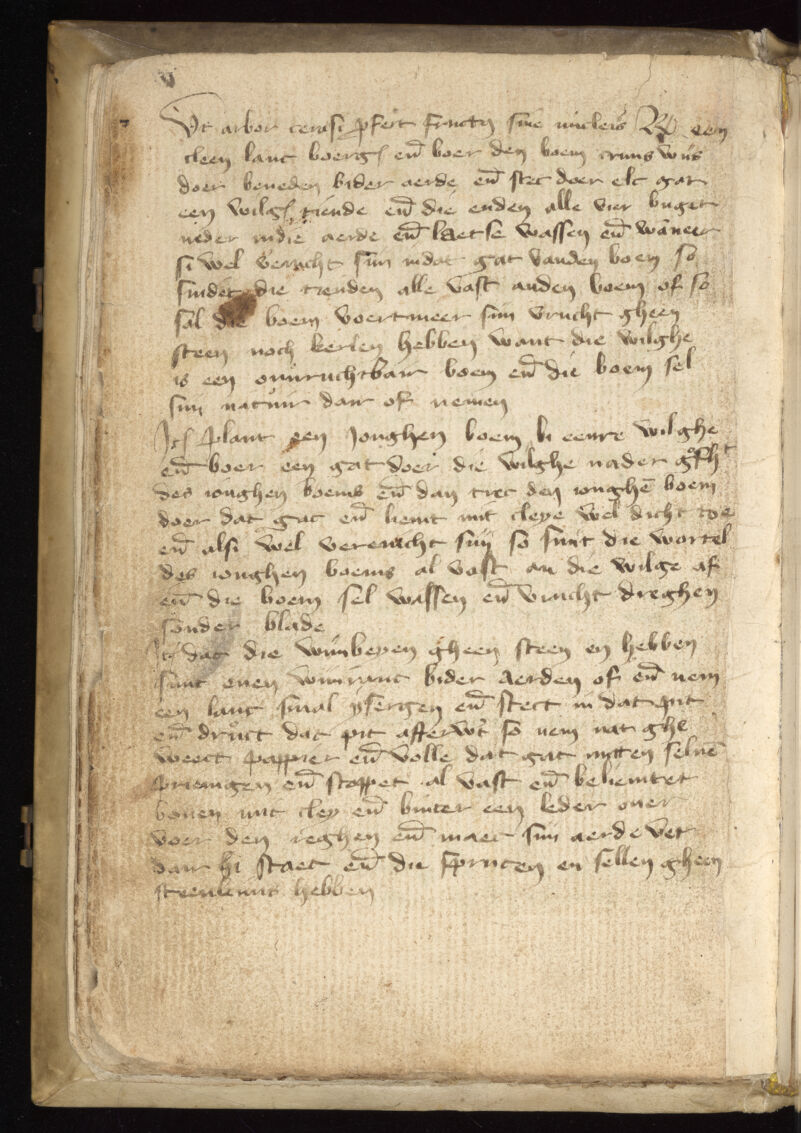 Ut arbor cerasi pfert fructu sine nucleis Rp een
cleen lanc boerg en boer den boem cruus wijs
doer beneden bider aerde en stec doer elc gat
een wilg tiende en die enden alle vier buget
neder in die aerde en laetse wassen en waneer
si wel veruacht sijn in dat gat vanden boem so
snidet die teenden alle vast anden boem of so
sal die boem voertmeer sijn vrucht gheen
steen noch kerlen hebben want die wilghe
is een onvruchtbair boem en die boem sel
sijn natuir dair of nemen
Ite plant een jonghen boem bi eenre wilghe
en boer een gat doer die wilghe nader
des ionghen boems en dan trec den ionghe boem
doer dat gat en liemt mit cleye wel dicht toe
en alsi wel vereuicht sijn so snit die wortel
des ionghen boems al vast an die wilge af
en die boem sel wassen en vrucht dreghen
sonder blade
Ite dat die wijnbeyen gheen steen en hebben
snit enen wijnranc bider aerden of en nem
een lanc smal ysergen en stect in dat pit
en druct dat pit afterwt so nem nat ghe
weect pappier en volle dat gat mitten seluen
priemgen en stoppet al vast en beliemtet
bouen mit cley en binter een leder ouer
voer den reghen en maec sijn aerde vet
dair hi staet en die spruten en sellen gheen
steenkens hebben